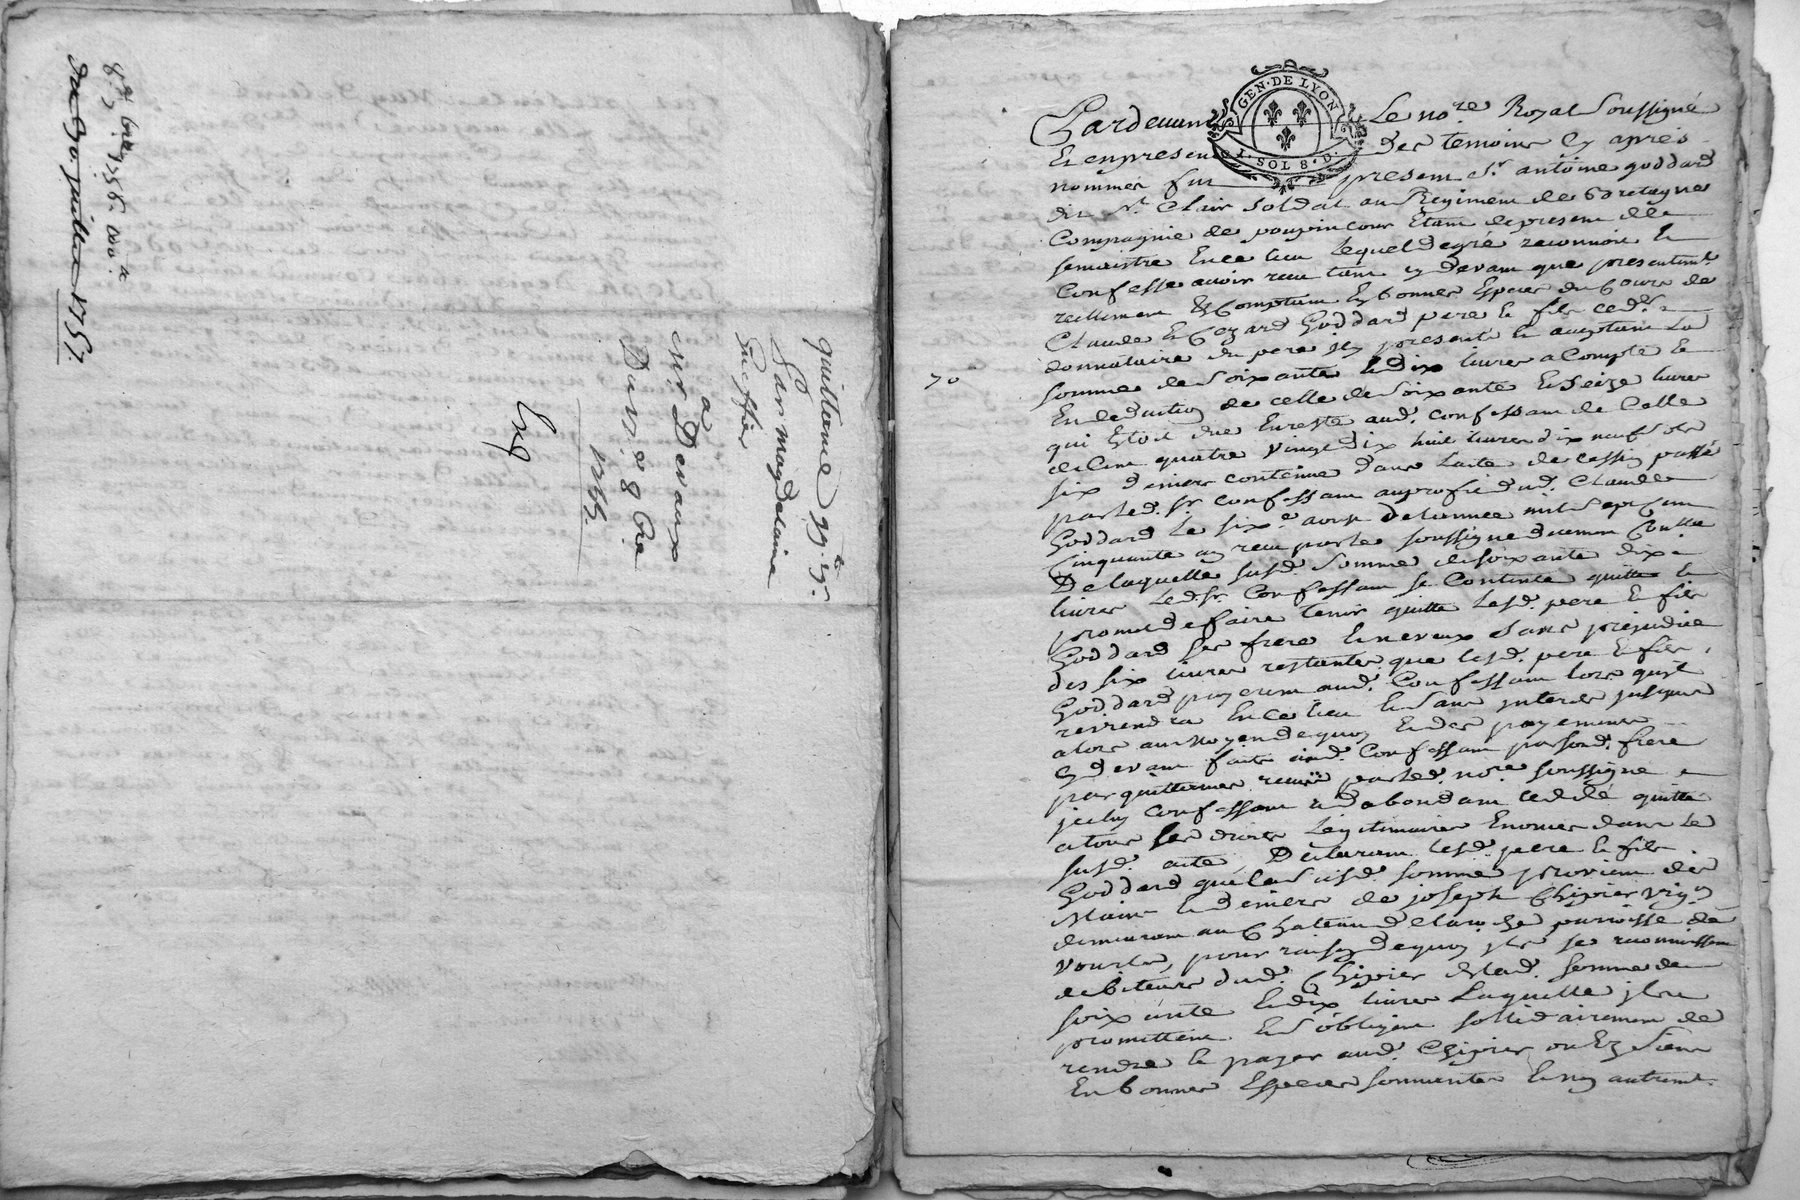 du 30 juillet 1757.
8 1756.
quittance
Par magdelaine
Suffier
a
Mr Devaux
Du 17 8bre
1766.
GEN. DE LYON
SOL 8. D.
Pardevant Le nore. Royal Soussigné
Et en presen des temoins Cy apres
nommés fut present Sr. antoine goddard
dit St. Clair Soldat au Regiment de bretagne
Compagnie de poupincour Etant de present de
semaistre En ce lieu Lequel de gré reconnoit Et
Confesse avoir receu tant cy devant que presentemt.
reellement & Comptant En bonnes Especes du Cours de
Claude Et Goddard pere Et fils
donnataire du pere presents Et acceptants La
70
somme de Soixante Et dix livres a Compte Et
En deduction de celle de Soixante Et Seize livres
qui Etoit due En reste aud. confessant de Celle
de Cent quatre vingt dix huit livres dix neuf sols
six deniers contenue dans Lacte de cession passé
par led. Sr. confessant au profit dud. Claude
Goddard Le six aoust de lannee mil Sept Cent
Cinquante un receu par le soussigné
De laquelle susd. somme de soixante dix
livres Led. Sr. Confessant se Contente quitte Et
promet de faire tenir quitte Lesd. pere Et fils
Goddard ses frere Et neveux Sans prejudice
des six livres restantes que lesd. pere Et fils
Goddard payeront aud. Confessant lors quil
reviendra En ce lieu Et Sans interets jusques
alors au moyen de quoy Et des payements
Cy devant faits aud. Confessant par sond. frere
par quittances receues par led. nore. soussigné
iceluy confessant dabondant quitte
a tous ses droits Legitimaires Enoncés dans Le
susd. acte, Declarant lesd. pere Et fils
Goddard que la susd. somme provient des
Mains Et deniers de joseph Chipier
demeurant au Chateau de la roche parroisse de
vourles, pour raison de quoy ils se reconnoissent
debiteurs dud. Chipier de lad. somme de
soixante Et dix livres Laquelle ils
promettent Et sobligent sollidairement de
rendre Et payer aud. Chipier ou Es Siens
En bonnes Especes sonnantes Et non autremt.